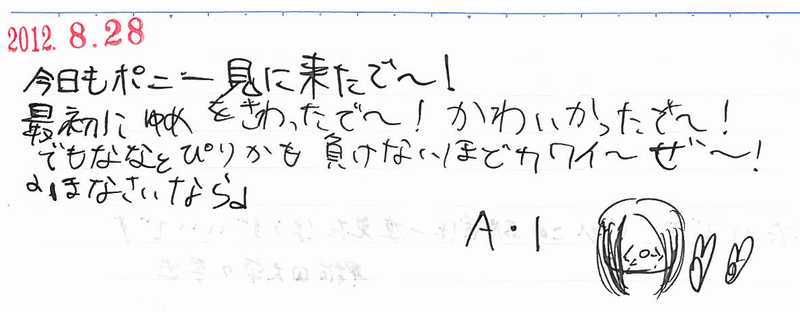 2012. 8.28
今日もポニー見に来たで～!
最初にゆめをさわったで～! かわいかったさ～!
でもななとぴりかも負けないほどカワイ～ぜ～!
♩ほなさいなら♩
A・I